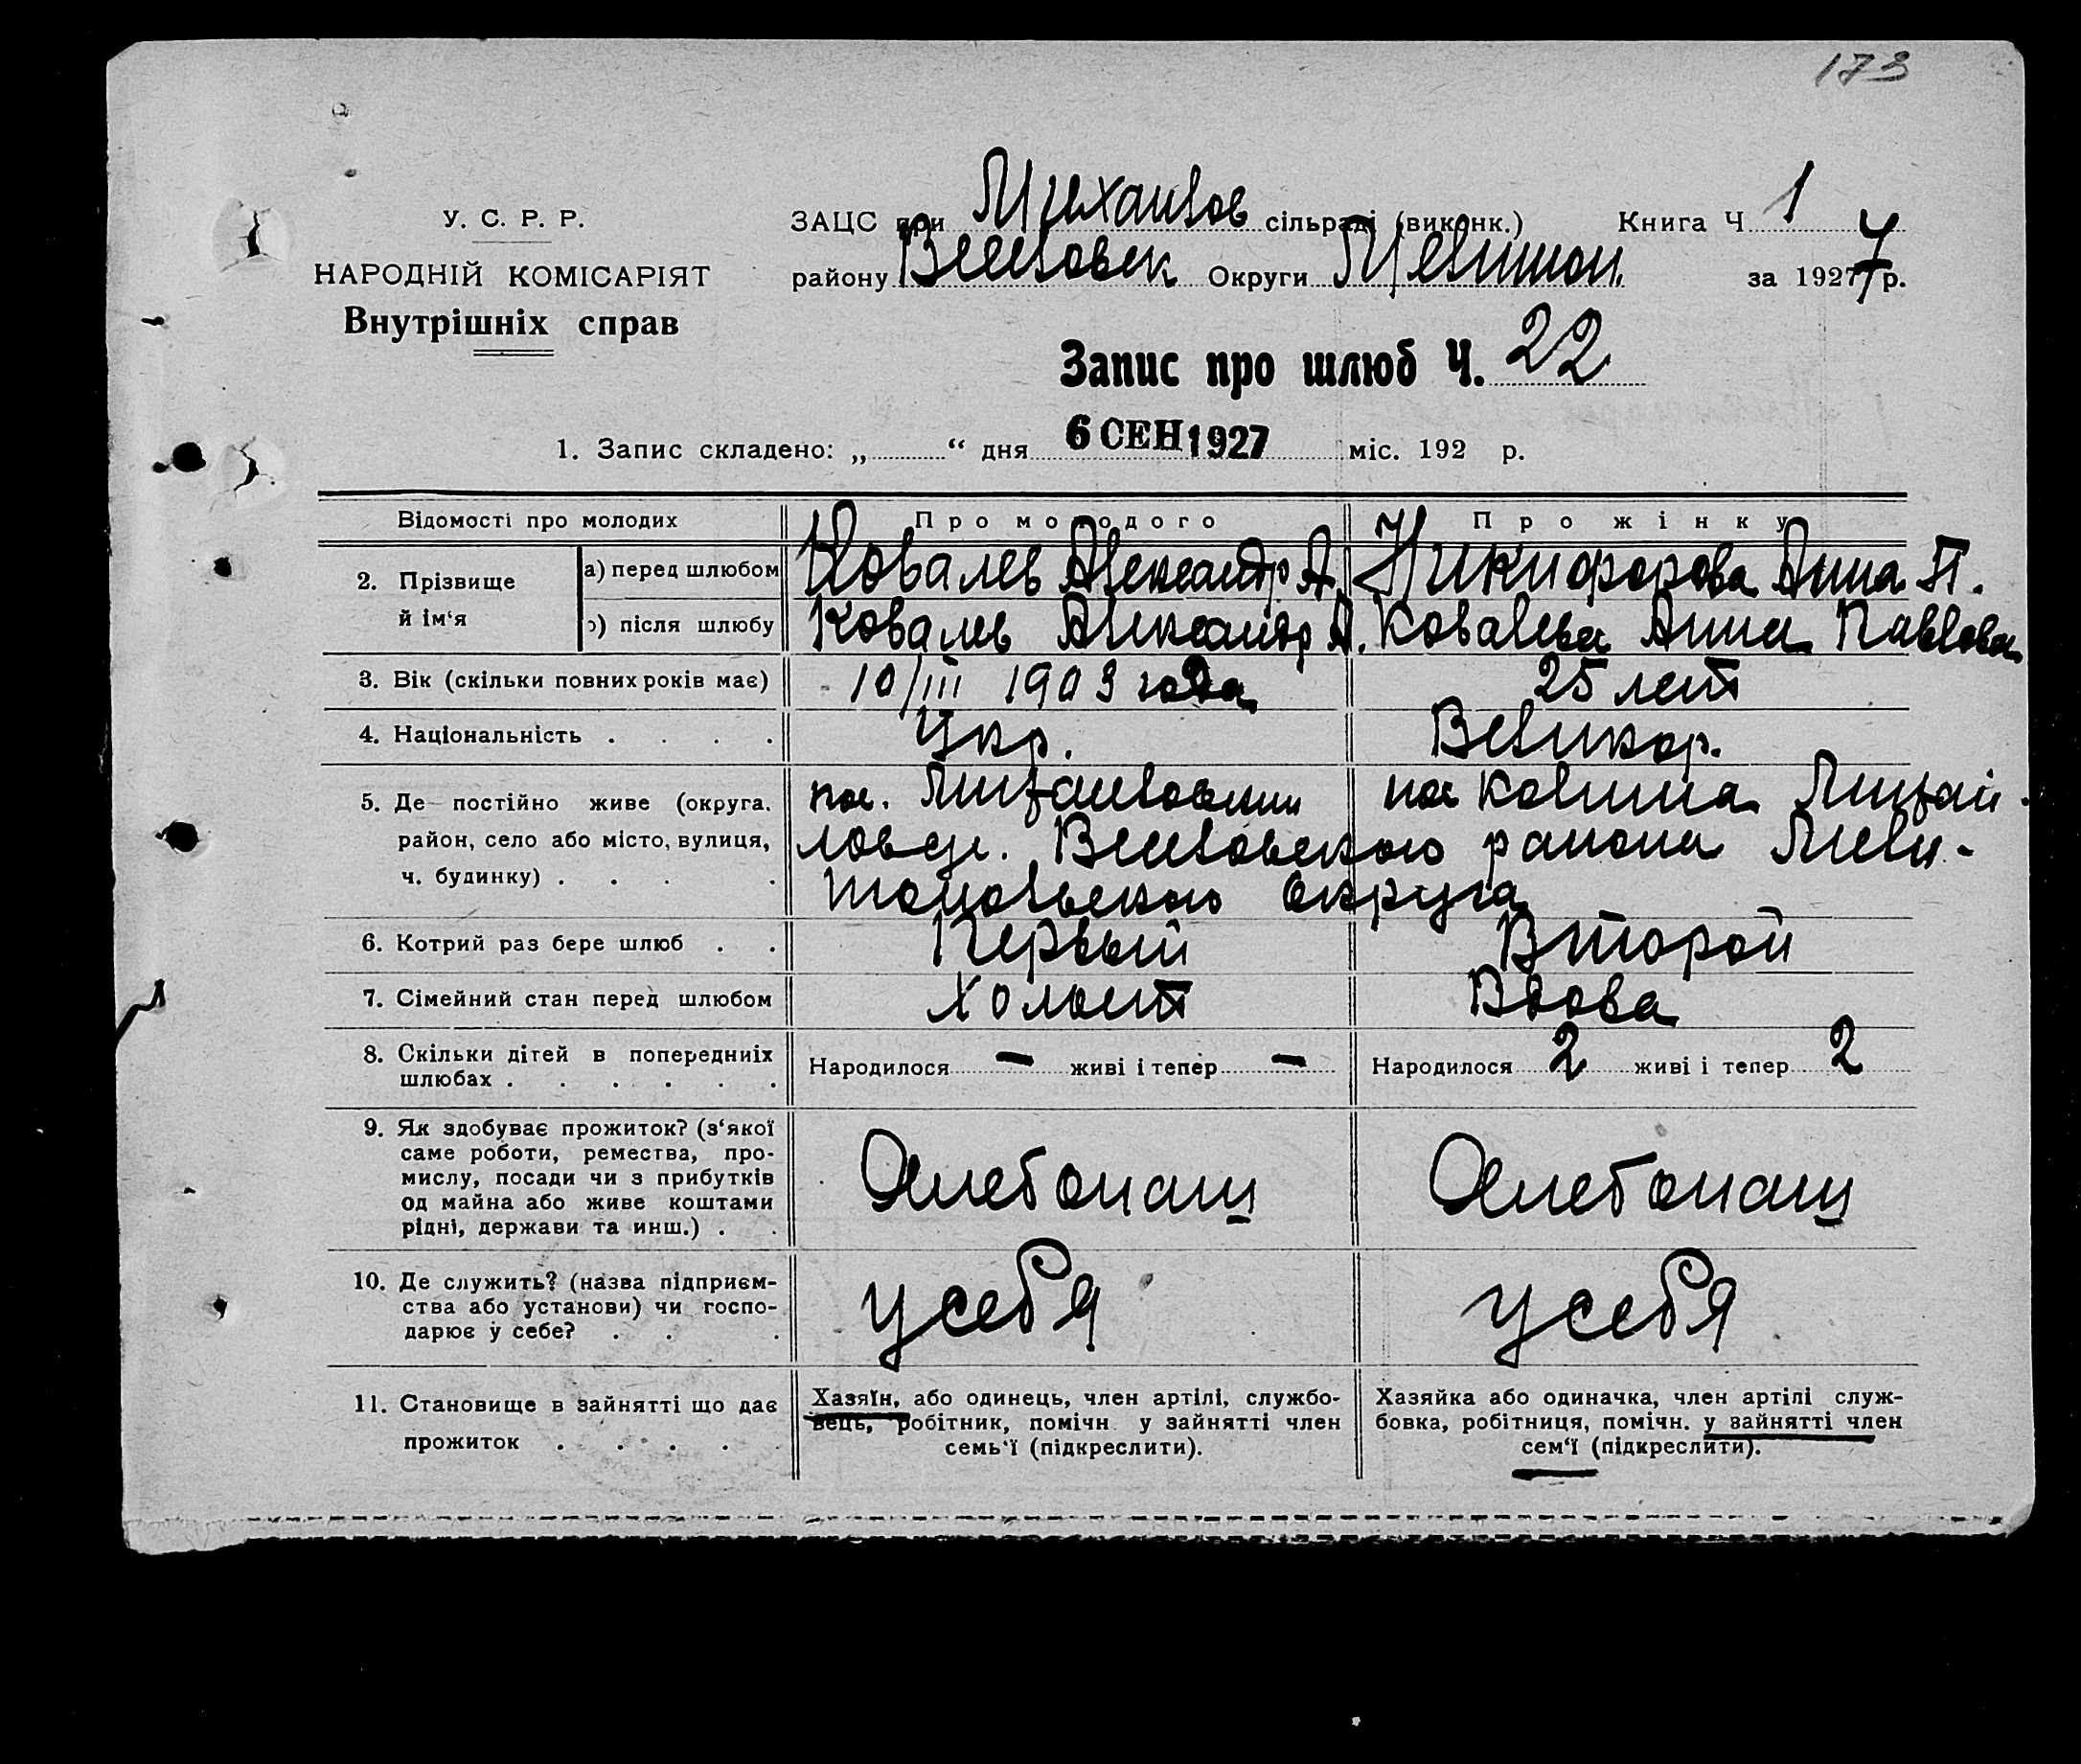 173
У. С. Р. Р.
НАРОДНІЙ КОМІСАРІЯТ
Внутрішніх справ
ЗАЦС при Михайлов сільраді (виконк.) Книга Ч 1
району Веселовск Округи Мелитоп. за 1927 р.
Запис про шлюб Ч. 22
1. Запис складено: „ “ дня 6 СЕН 1927 міс. 192 р.
Відомості про молодих Про молодого Про жінку
2. Прізвище й ім‘я
а) перед шлюбом Ковалев Александр А. Никифорова Анна П.
б) після шлюбу Ковалев Александр А. Ковалева Анна Павлова
3. Вік (скільки повних років має) 10/III 1903 года 25 лет
4. Національність . . . . Укр. Великор.
5. Де постійно живе (округа, район, село або місто, вулиця, ч. будинку) . . . .
пос. Михай
ловск. Веселовского района Мели-
топольского Округа
6. Котрий раз бере шлюб . . Первый Второй
7. Сімейний стан перед шлюбом Холост Вдова
8. Скільки дітей в попередніх шлюбах . . . . . .
Народилося – живі і тепер – Народилося 2 живі і тепер 2
9. Як здобуває прожиток? (з‘якої
саме роботи, ремества, про-
мислу, посади чи з прибутків
од майна або живе коштами
рідні, держави та инш.) . .
Хлебопаш Хлебопаш
10. Де служить? (назва підприєм-
ства або установи) чи госпо-
дарює у себе? . . .
у себя у себя
11. Становище в зайнятті що дає
прожиток . . . . .
Хазяїн, або одинець, член артілі, службо-
вець, робітник, помічн. у зайнятті член
семь‘ї (підкреслити).
Хазяйка або одиначка, член артілі служ-
бовка, робітниця, помічн. у зайнятті член
сем‘ї (підкреслити).